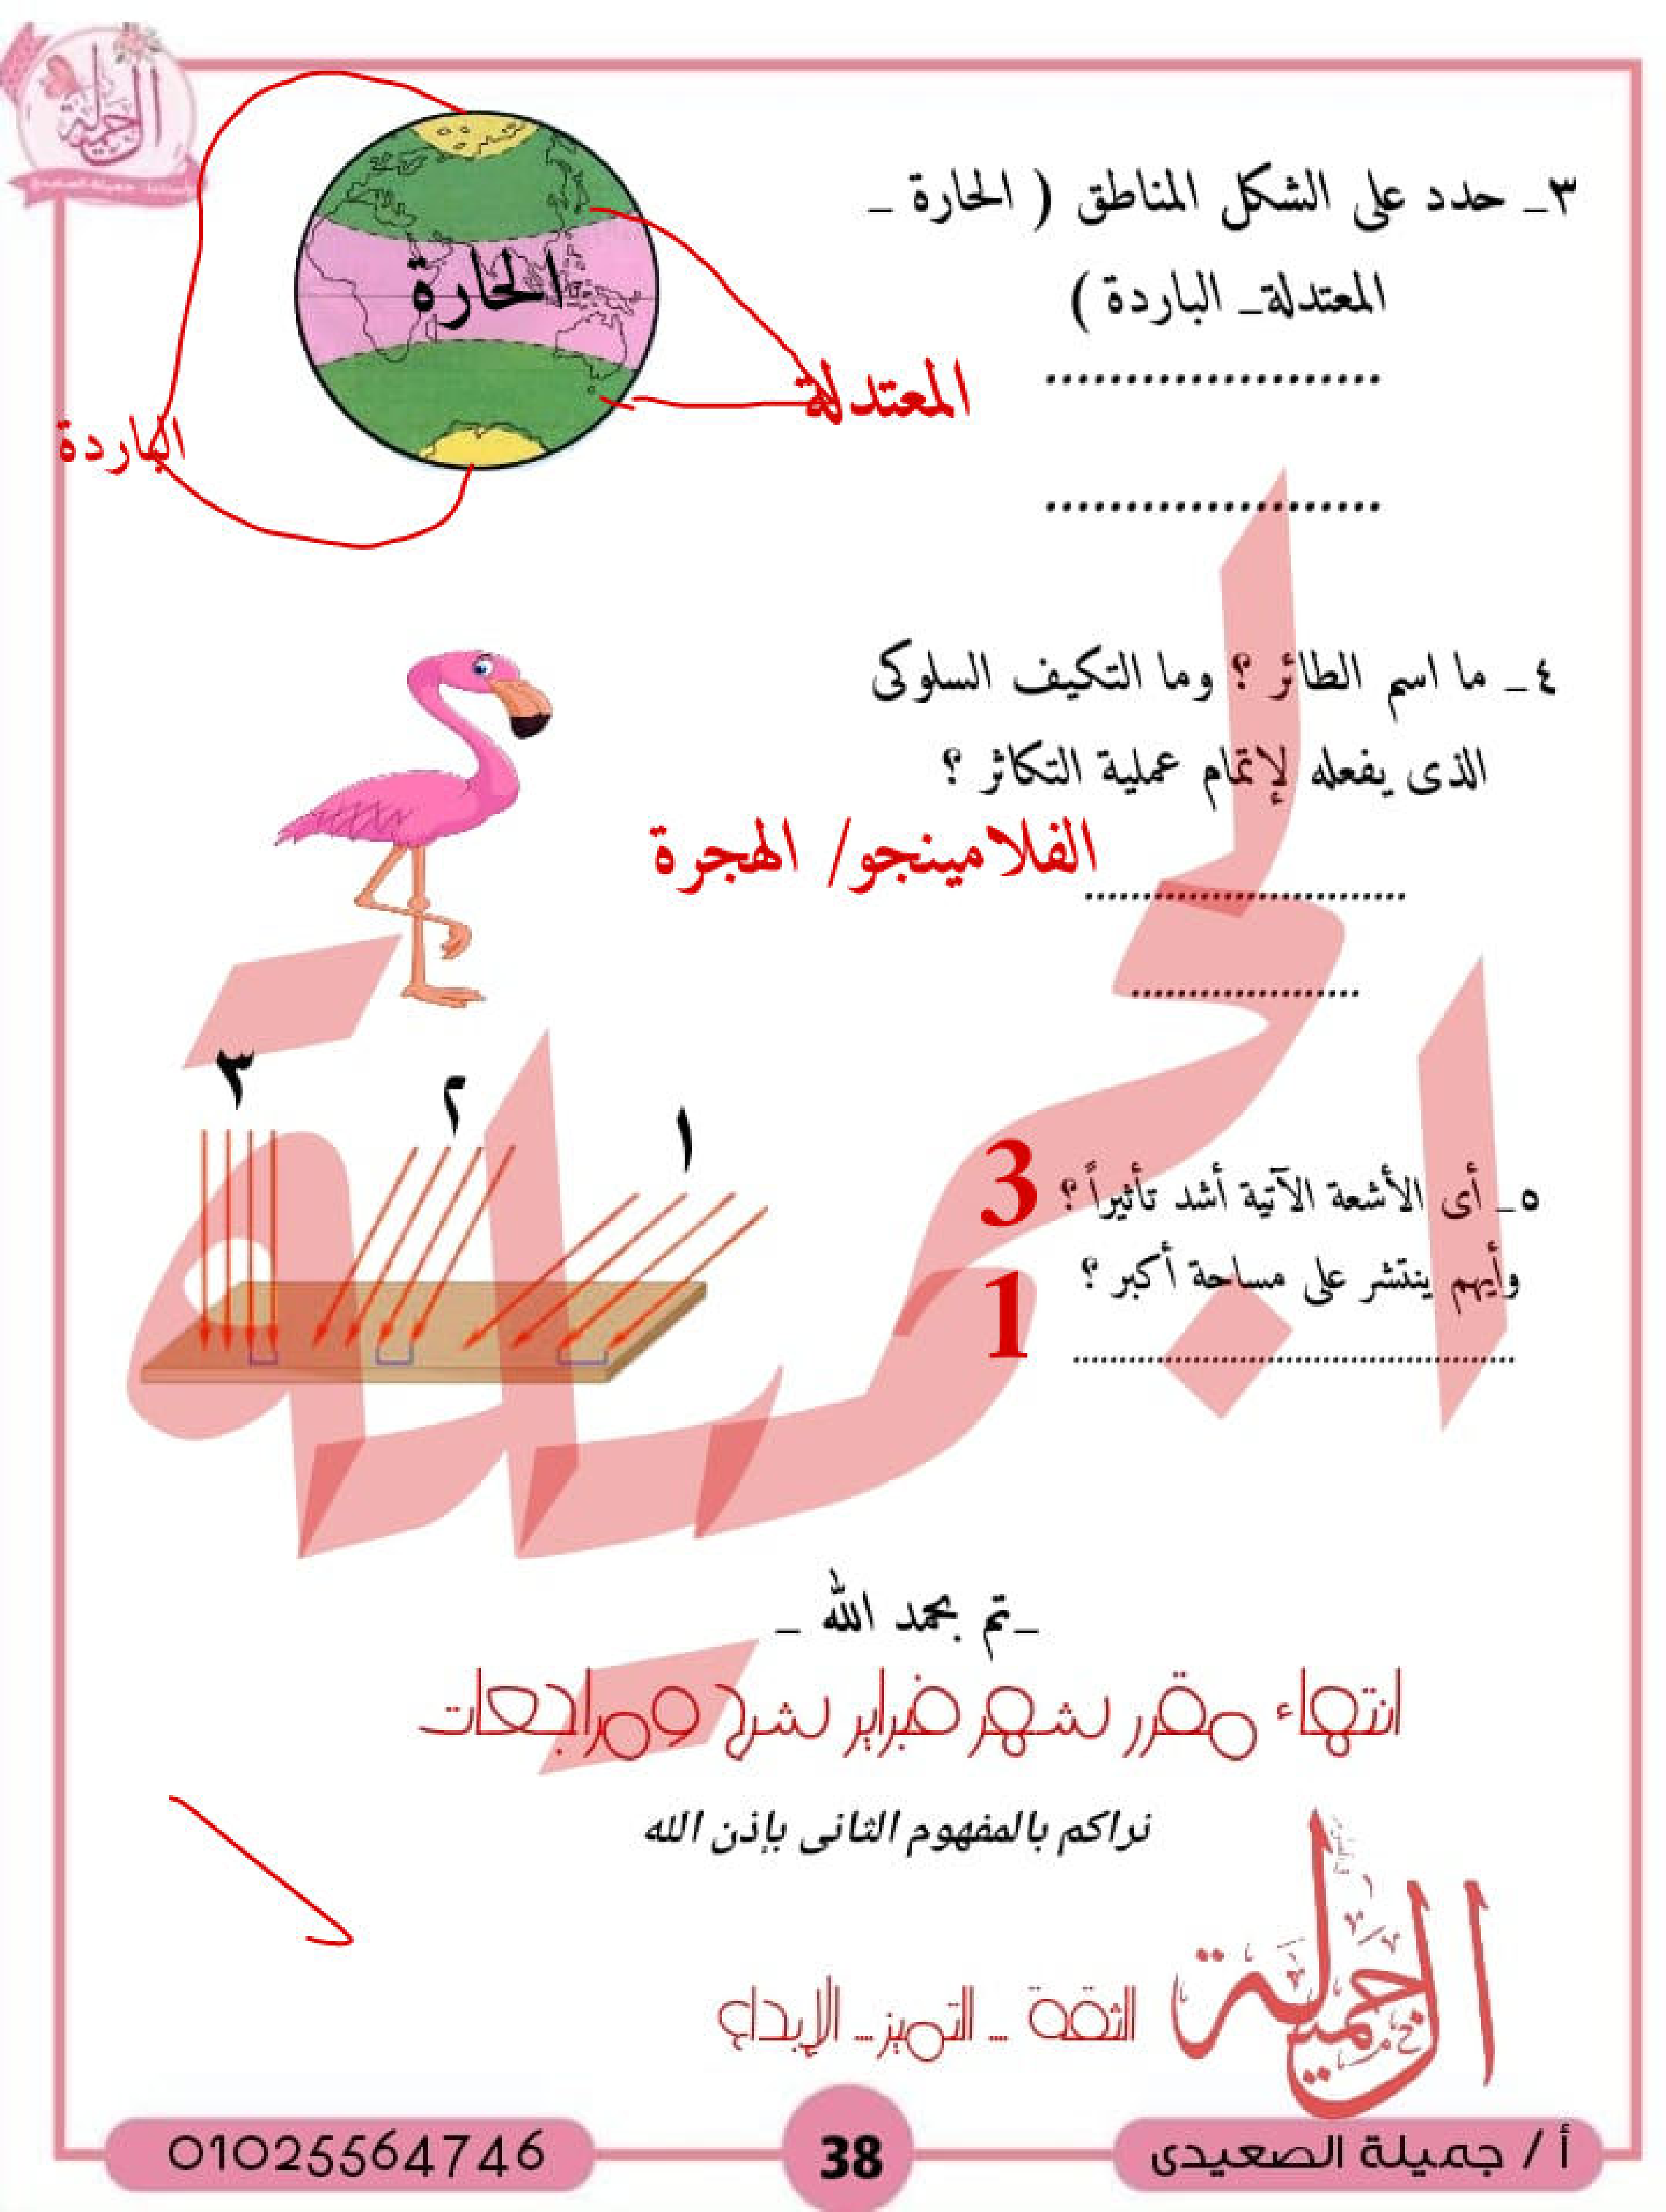 الجميلة
٣_ حدد على الشكل المناطق ( الحارة _
المعتدلة_ الباردة )
الحارة
المعتدلة
الباردة
.....................
.....................
٤_ ما اسم الطائر ؟ وما التكيف السلوكى
الذى يفعله لإتمام عملية التكاثر ؟
الفلامينجو/ الهجرة
............................
....................
٣
٢
١
٥_ أى الأشعة الآتية أشد تأثيراً ؟ 3
وأيهم ينتشر على مساحة أكبر ؟
1
............................................
الجميلة
_تم بحمد الله _
انتهاء مقرر شهر فبراير شرح ومراجعات
نراكم بالمفهوم الثانى بإذن الله
الجميلة
الثقة _ التميز_ الإبداع
أ / جميلة الصعيدى
38
01025564746